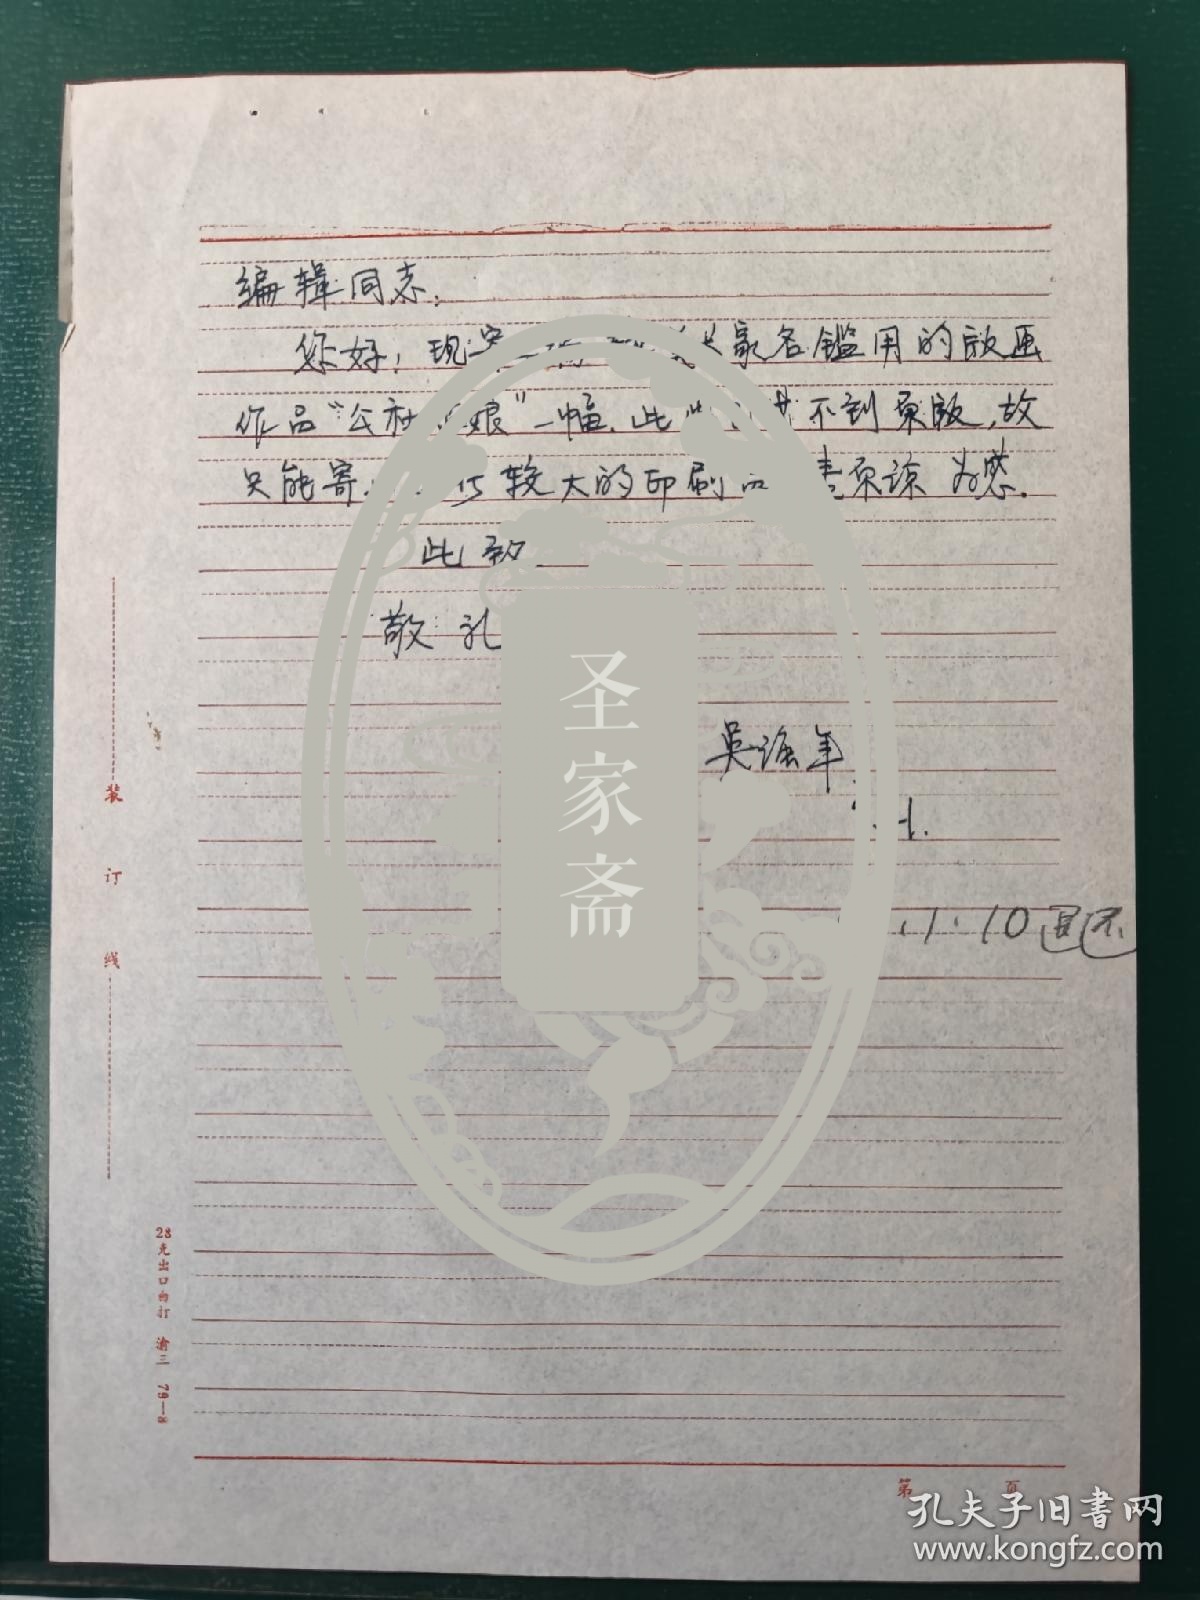 编辑同志：
您好！现寄 家名鑑用的版画
作品“公社 娘”一幅．此 不到原版，故
只能寄 较大的印刷品 请原谅为感．
此致
敬礼
吴强年
1.10
圣家斋
装订线
28克出口白打 渝三 79—8
第 页
孔夫子旧书网
www.kongfz.com